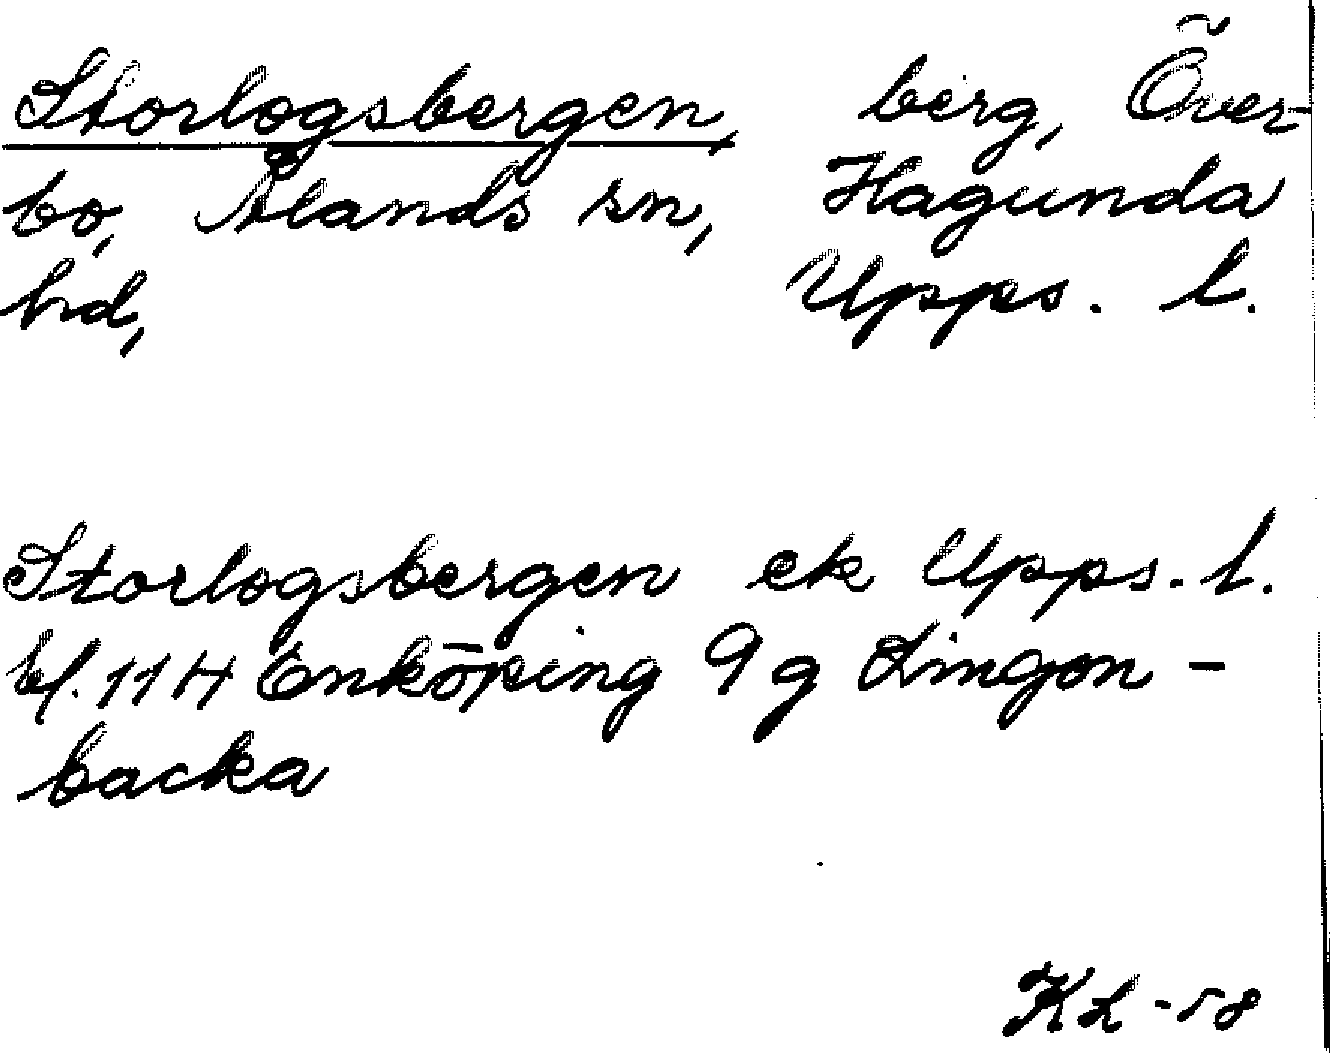 Storlogsbergen, berg, Över-
bo, Ålands sn, Hagunda
hd, Upps. l.
Storlogsbergen ek Upps. l.
bl. 11 H Enköping 9 g Lingon-
backa
KL -58